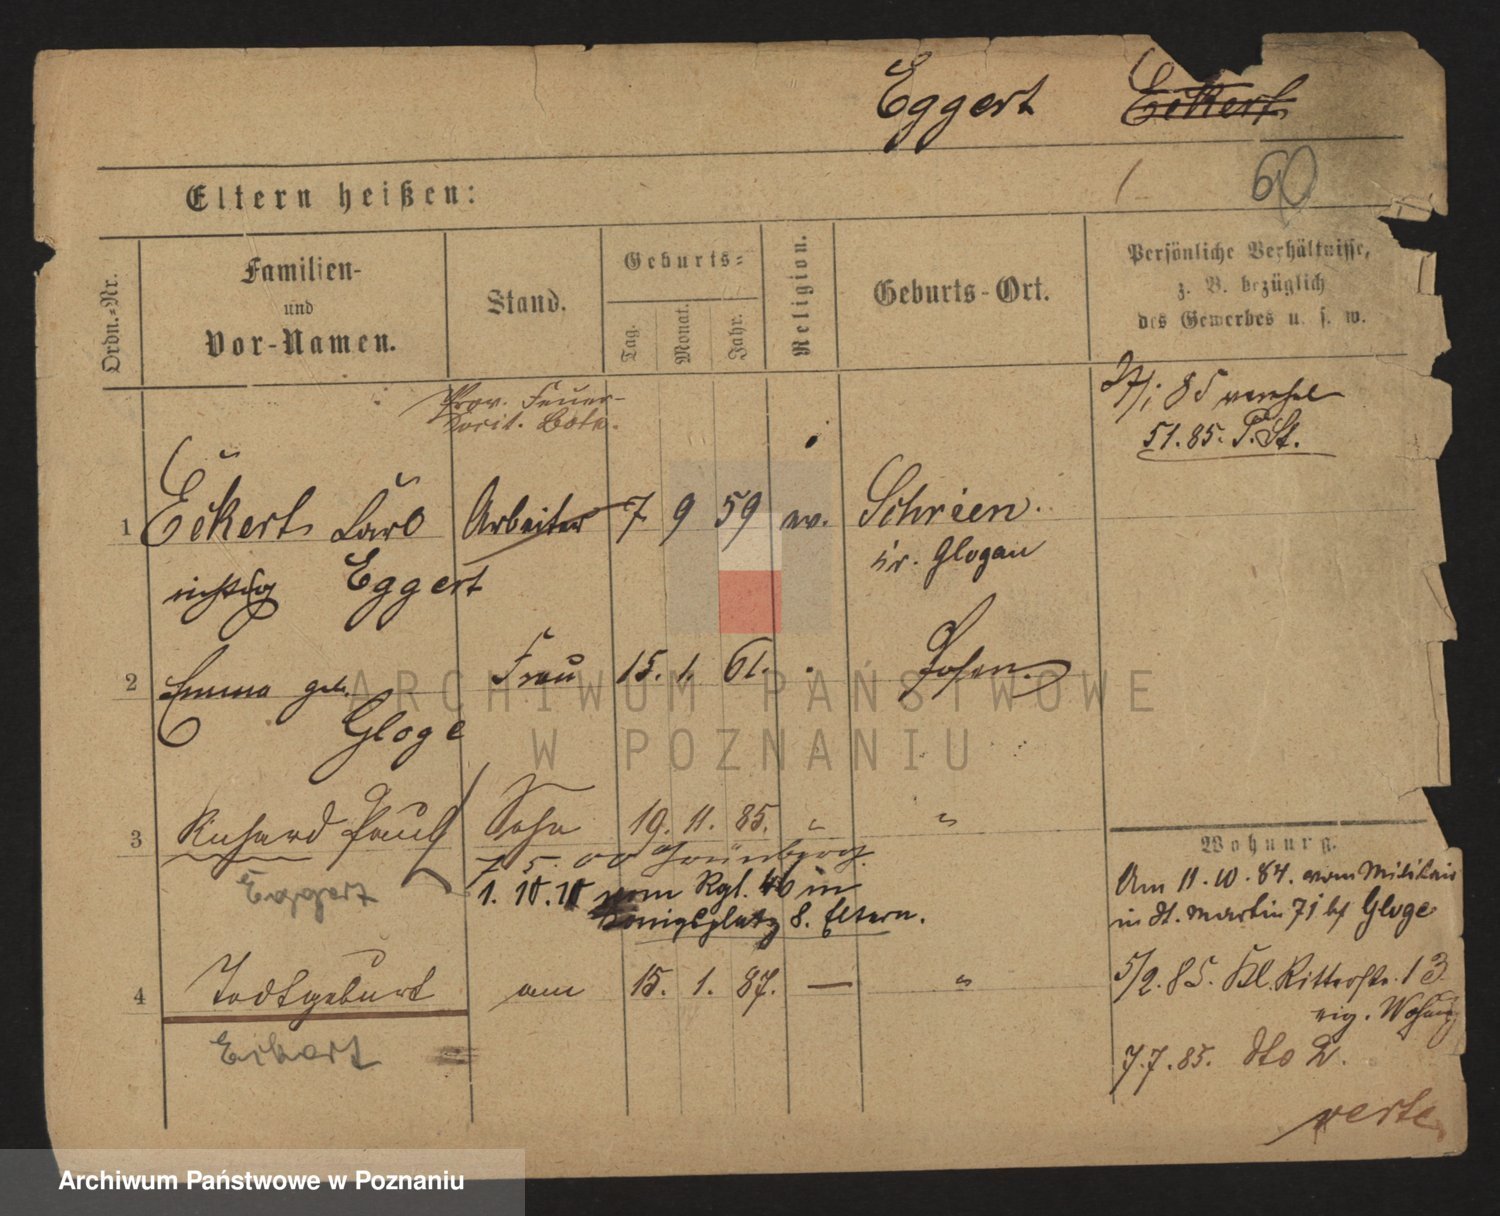 Eggert Eckert
60
Eltern heißen:
Ordn.-Nr.
Familien-
und
Vor-Namen.
Stand.
Geburts-
Tag.
Monat.
Jahr.
Religion.
Geburts-Ort.
Persönliche Verhältnisse,
z. B. bezüglich
des Gewerbes u. s. w.
Prov. Feuer-
Socit. Bote.
51.85. P. St.
1 Eckert Carl Arbeiter 7 9 59 ev. Schrien.
richtig Eggert Kr. Glogau
2 Emma geb. Frau 15. 1. 61. Posen.
Gloge
3 Richard Paul Sohn 19. 11. 85. "  "
Eggert
1. 10. 10 vom Rgt. 46 in
Königsplatz 8. Eltern.
4 Todtgeburt am 15. 1. 87. — "
Eckert
Wohnung.
Am 11.10.84. vom Militair
in St. Martin 71 bf Gloge
5/2.85. Kl. Ritterstr. 13
eig. Wohnung
7.7.85. dto 2.
verte
ARCHIWUM PAŃSTWOWE
W POZNANIU
Archiwum Państwowe w Poznaniu